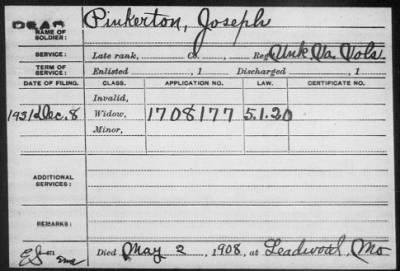 DEAD
NAME OF SOLDIER: Pinkerton, Joseph
SERVICE: Late rank, Co. , Reg Unk Va Vols
TERM OF SERVICE: Enlisted , 1 Discharged , 1
DATE OF FILING. CLASS. APPLICATION NO. LAW. CERTIFICATE NO.
Invalid,
1931 Dec. 8 Widow, 1708177 5.1.20
Minor,
ADDITIONAL SERVICES:
REMARKS:
Died May 2, 1908, at Leadwood, Mo